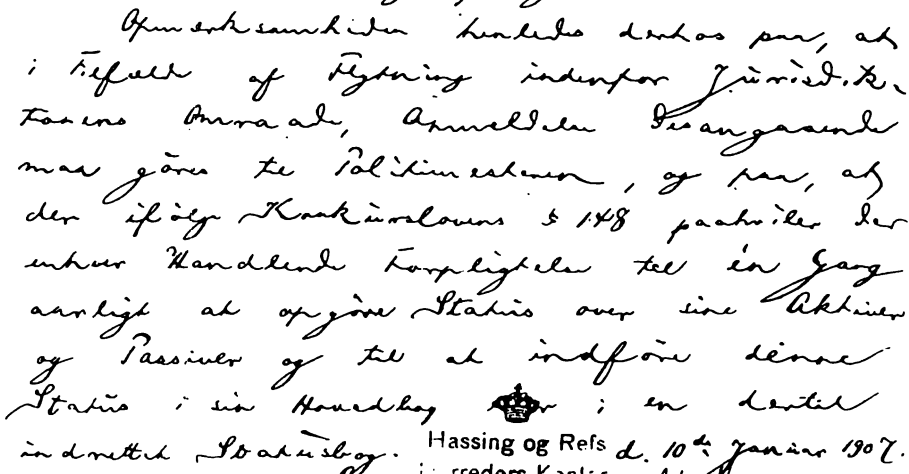 Opmerksomheden henledes derhos paa, at
i Tilfælde af Flytning indenfor Jurisdik-
tionens Omraade, Anmeldelse desangaaende
maa göres til Politimesteren, og paa, at
der ifölge Konkurslovens § 148 paahviler der
enhver Handlende Forpligtelse til én Gang
aarligt at opgöre Status over sine Aktiver
og Passiver og til at indföre denne
Status i sin Hovedbog eller i en dertil
indrettet Statusbog.
Hassing og Refs d. 10de Januar 1907.